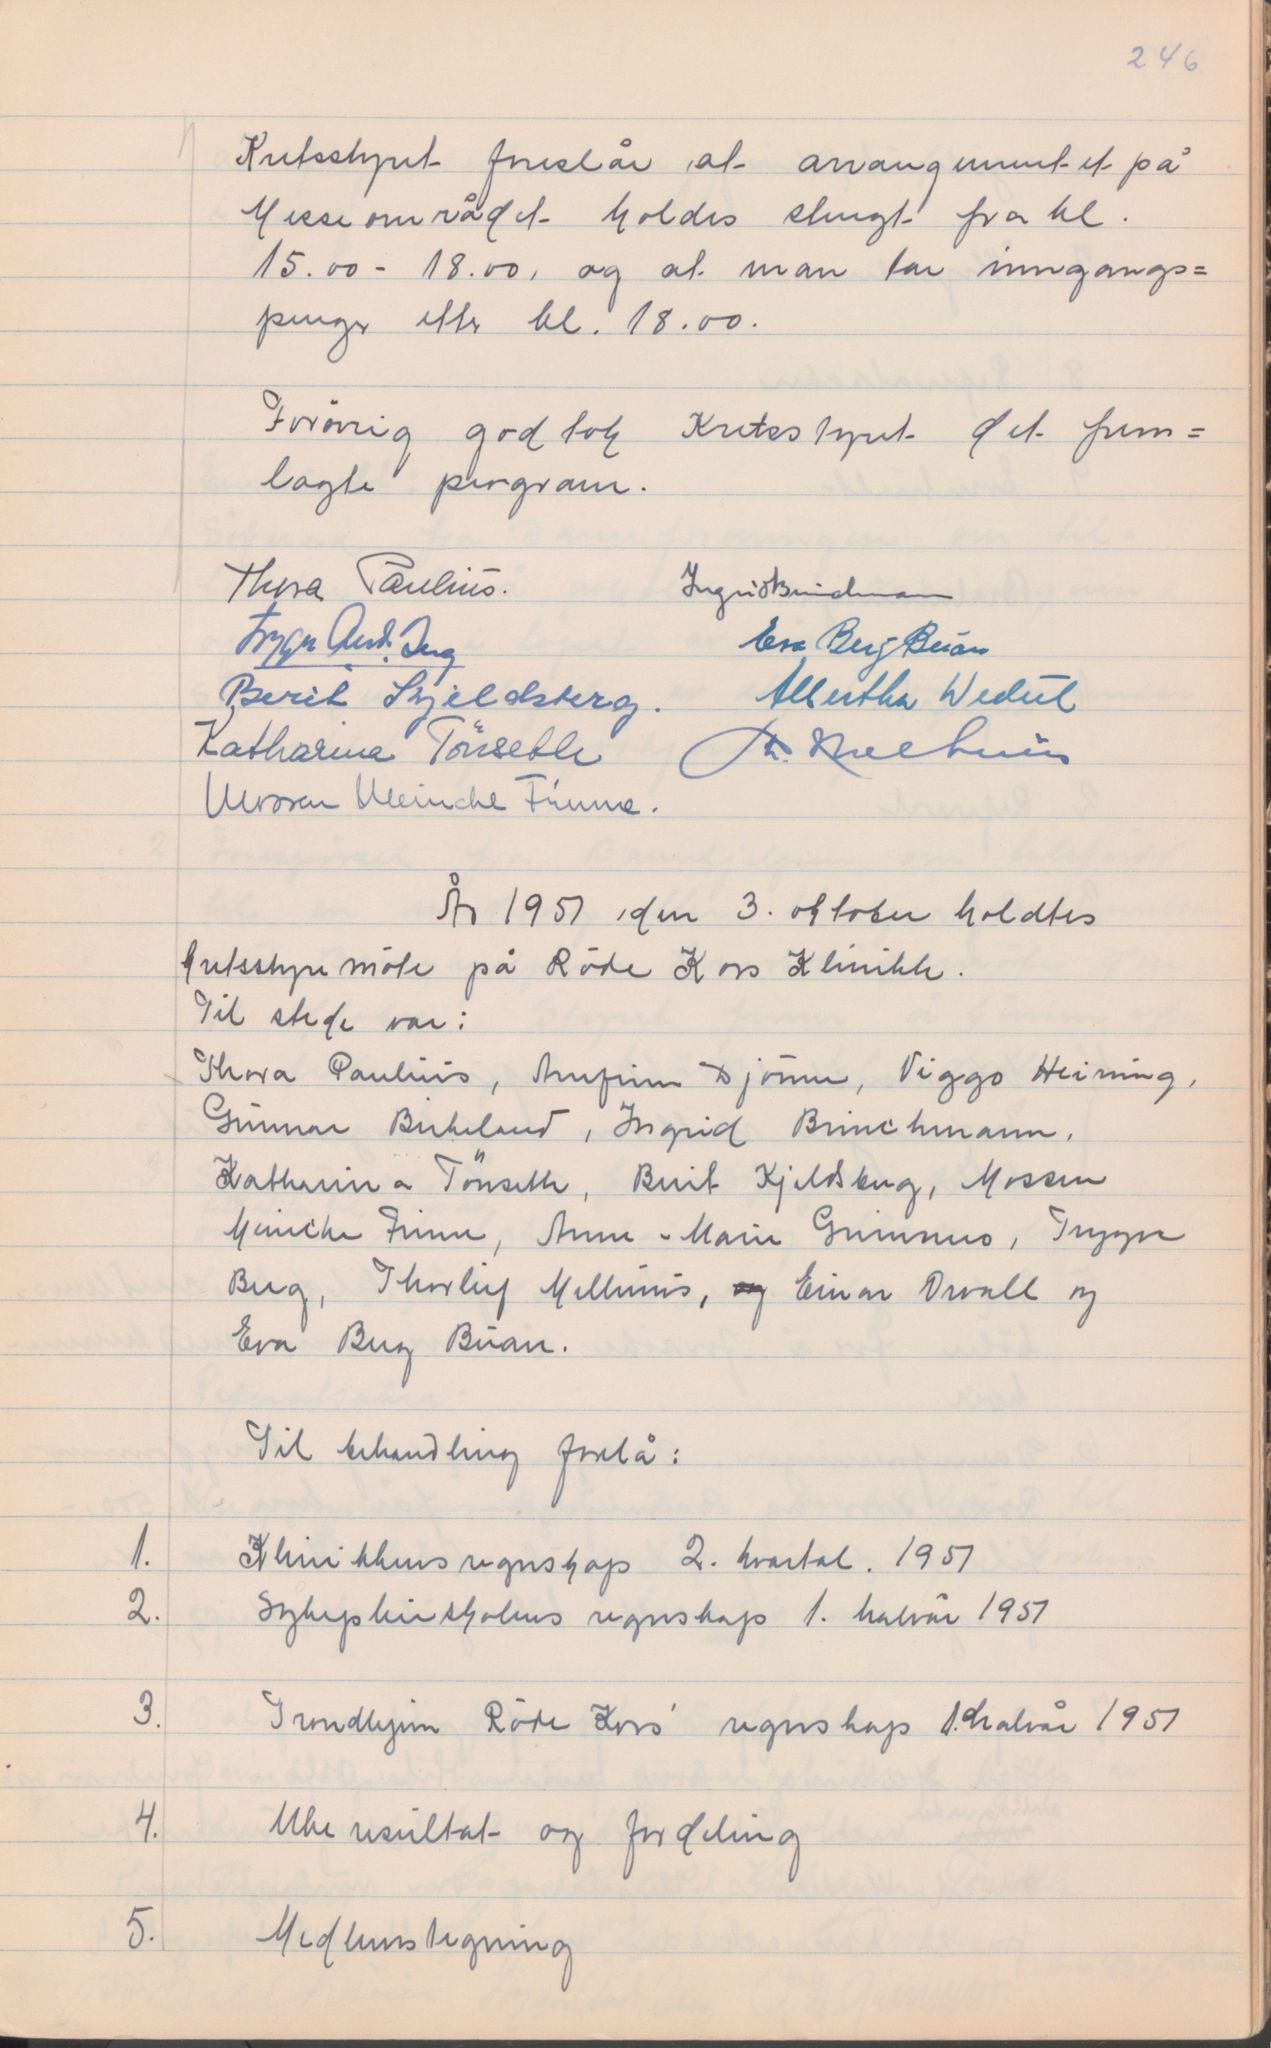 246
Kretsstyret foreslår at arrangementet på
Messeområdet holdes stengt fra kl.
15.00 - 18.00, og at man tar inngangs=
penger etter kl. 18.00.
Forövrig godtok Kretsstyret det frem=
lagte program.
Thora Paulius. Ingrid Brinchmann
Trygve Berg Eva Berg Buan
Berit Kjeldsberg. Albertha Wedul
Katharina Tönseth Th. Mellhuus
Mossen Meincke Finne.
År 1951 den 3. oktober holdtes
kretsstyremöte på Röde Kors Klinikk.
Til stede var:
Thora Paulius, Arnfinn Djönne, Viggo Heining,
Gunnar Birkeland, Ingrid Brinchmann,
Katharina Tönseth, Berit Kjeldsberg, Mossen
Meincke Finne, Anne-Marie Trygve
Berg, Thorleif Mellhuus, og Einar Orvall og
Eva Berg Buan.
Til behandling forelå:
1. Klinikkens regnskap 2. kvartal. 1951
2. Sykepleieskolens regnskap 1. halvår 1951
3. Trondhjem Röde Kors' regnskap 1. halvår 1951
4. Uke resultat og fordeling
5. Medlemstegning